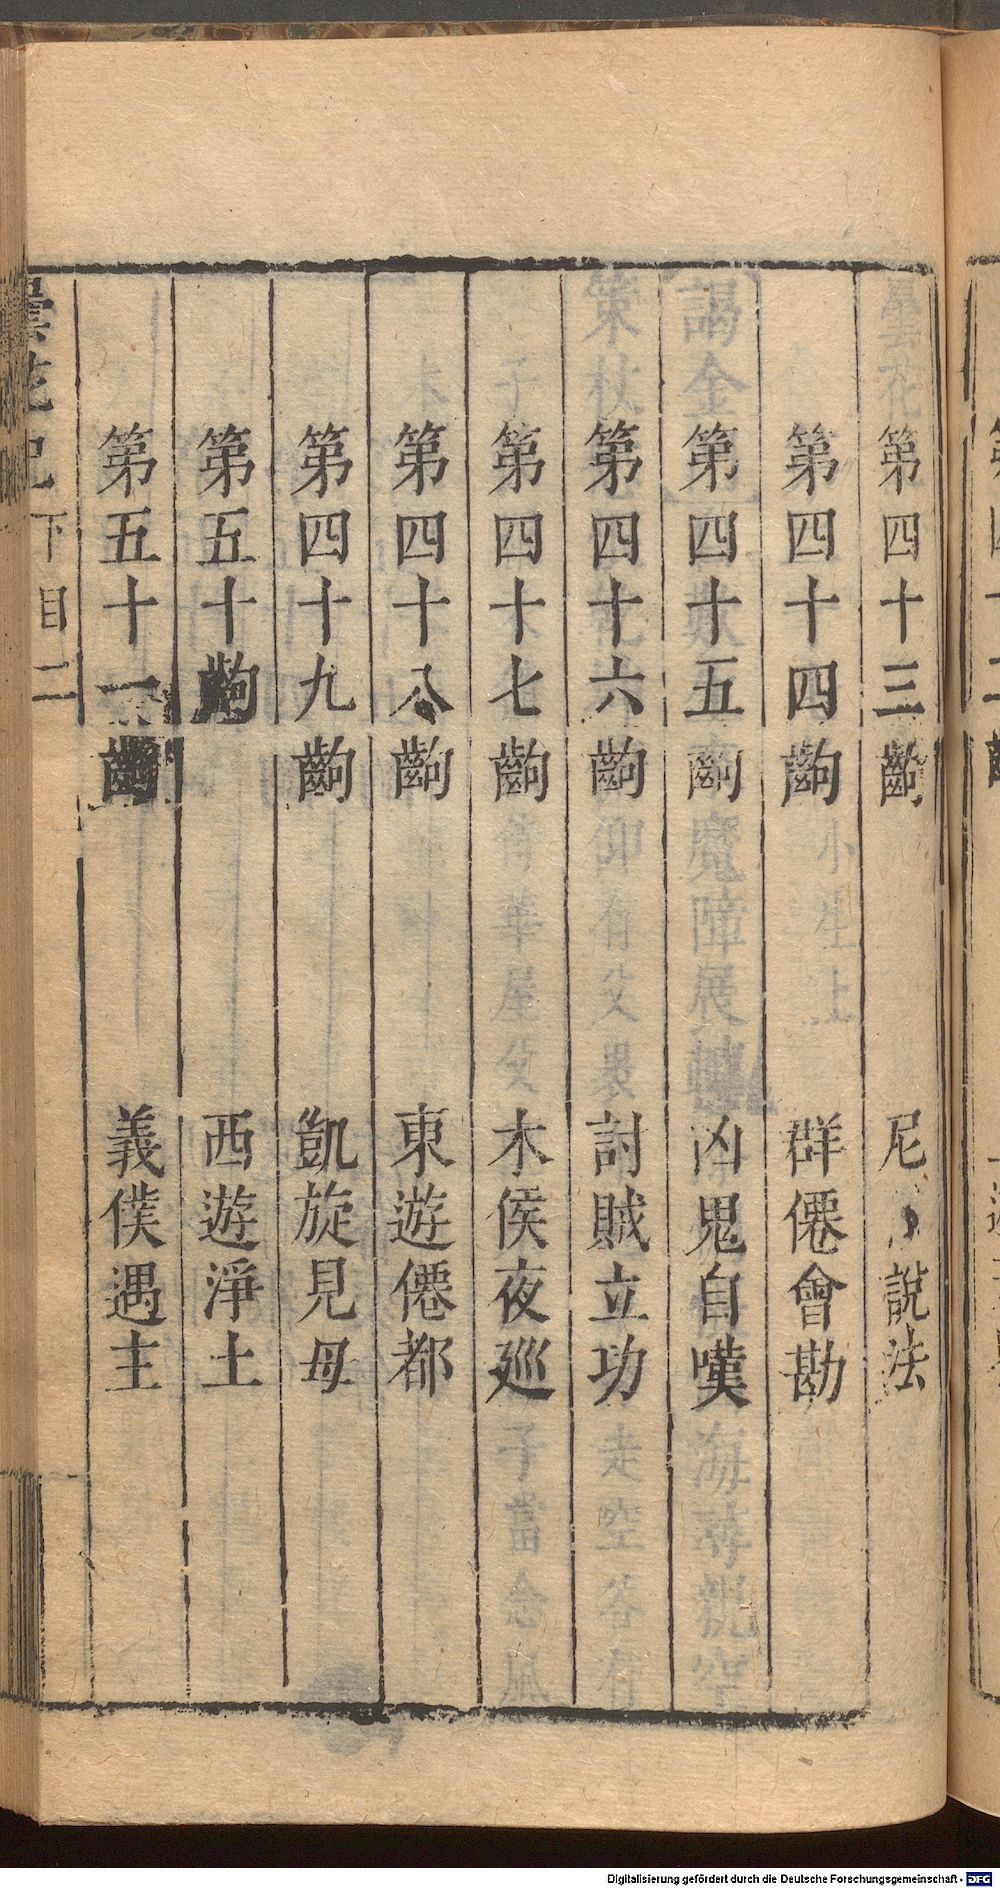 第四十三齣 尼說法
第四十四齣 群僊會勘
第四十五齣 凶鬼自嘆
第四十六齣 討賊立功
第四十七齣 木侯夜巡
第四十八齣 東遊僊都
第四十九齣 凱旋見母
第五十齣 西遊淨土
第五十一齣 義僕遇主
曇花記 下目 二
Digitalisierung gefördert durch die Deutsche Forschungsgemeinschaft - DFG